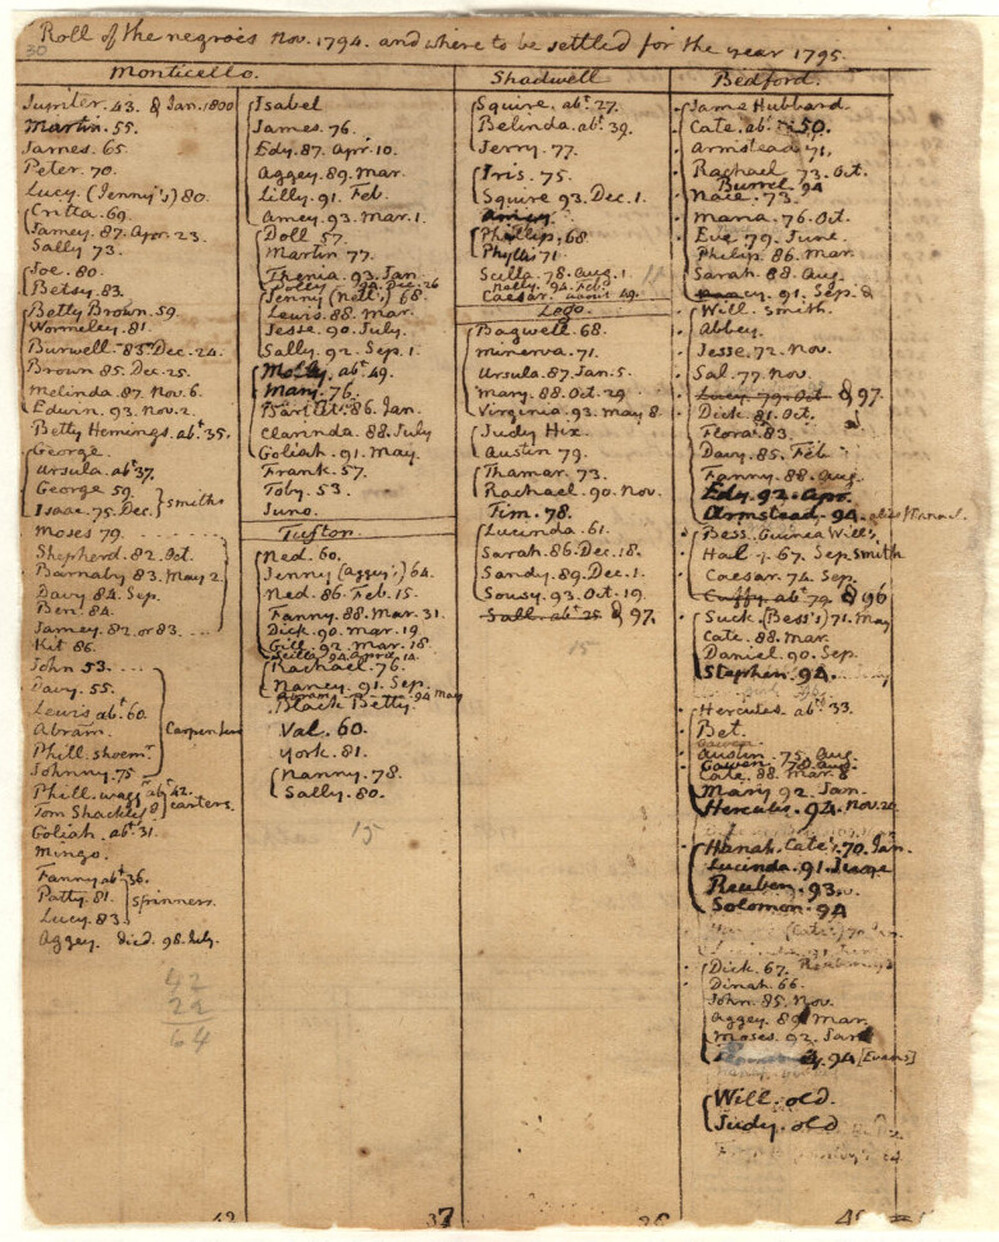 Roll of the negroes Nov. 1794. and where to be settled for the year 1795.
30
Monticello.
Jupiter. 43. Jan. 1800
Martin. 55.
James. 65.
Peter. 70.
Lucy. (Jenny's) 80.
Critta. 69.
Jamey. 87. Apr. 23.
Sally 73.
Joe. 80.
Betsy. 83.
Betty Brown. 59.
Wormeley. 81.
Burwell. 83. Dec. 24.
Brown 85. Dec. 25.
Melinda. 87. Nov. 6.
Edwin. 93. Nov. 2.
Betty Hemings. abt. 35.
George.
Ursula. abt. 37.
George 59.
Isaac. 75. Dec.
smiths
Moses 79.
Shepherd. 82. Oct.
Barnaby 83. May 2.
Davy 84. Sep.
Ben. 84.
Jamey. 82. or 83.
Kit 86.
John 53.
Davy. 55.
Lewis abt. 60.
Abram.
Phill. shoemr.
Johnny. 75
Carpenters
Phill. wagr. abt. 42.
Tom Shackleford
carters.
Goliah. abt. 31.
Mingo.
Fanny abt. 36.
Patty. 81.
Lucy. 83.
spinners.
Aggey. died. 98. July.
42
22
64
Isabel
James. 76.
Edy. 87. Apr. 10.
Aggey. 89. Mar.
Lilly. 91. Feb.
Amey. 93. Mar. 1.
Doll 57.
Martin 77.
Thenia. 93. Jan.
Dolly. 94. Dec. 26
Jenny (Ned's.) 68.
Lewis. 88. Mar.
Jesse. 90. July.
Sally. 92. Sep. 1.
Molly. abt. 49.
Mary. 76.
Bartlet. 86. Jan.
Clarinda. 88. July
Goliah. 91. May.
Frank. 57.
Toby. 53.
Juno.
Tufton.
Ned. 60.
Jenny (Aggey's) 64.
Ned. 86. Feb. 15.
Fanny. 88. Mar. 31.
Dick. 90. Mar. 19.
Gill. 92. Mar. 18
Scilla. 94. April 14.
Rachael. 76.
Nancy. 91. Sep.
Abram. 94 May
Black Betty.
Val. 60.
York. 81.
Nanny. 78.
Sally. 80.
15
37
Shadwell
Squire. abt. 27.
Belinda. abt. 39.
Jerry. 77.
Iris. 75.
Squire 93. Dec. 1.
Phillip. 68.
Phyllis 71
Scilla. 78. Aug. 1
Nelly. 94. Feb.
Caesar. about 49.
11
Lego.
Bagwell. 68.
Minerva. 71.
Ursula. 87. Jan. 5.
Mary. 88. Oct. 29
Virginia. 93. May 8.
Judy Hix.
Austin 79.
Thamar. 73.
Rachael. 90. Nov.
Tim. 78.
Lucinda. 61.
Sarah. 86. Dec. 18.
Sandy. 89. Dec. 1.
Sousy. 93. Oct. 19.
Sall. abt. 25 97.
15
Bedford.
Jame Hubbard.
Cate. abt. 50.
Armistead 71.
Rachael 73. Oct.
Burrel. 94
Nace. 73.
Maria. 76. Oct.
Eve 79. June.
Philip. 86. Mar.
Sarah. 88. Aug.
Nancy. 91. Sep. 2
Will. smith.
Abbey.
Jesse. 72. Nov.
Sal. 77. Nov.
Lucy. 79. Oct 97.
Dick. 81. Oct.
Flora. 83.
Davy. 85. Feb
Fanny. 88. Aug.
Edy. 92. Apr.
Armstead. 94. alias Manuel.
Bess. Guinea Will's
Hal. 67. Sep. smith
Caesar. 74. Sep.
Cuffy. abt. 79. 96
Suck. (Bess's) 71. May
Cate. 88. Mar.
Daniel. 90. Sep.
Stephen. 94.
Hercules. abt. 33.
Bet.
Austin. 75. Aug.
Gawen. 78. Aug.
Cate. 88. Mar. 8
Mary 92. Jan.
Hercules. 94. Nov. 20
Hanah. Cate's. 70. Jan.
Lucinda. 91. June
Reuben. 93.
Solomon. 94
Dick. 67.
Dinah. 66.
John. 85. Nov.
Aggey. 89 Mar.
Moses. 92. Jan
94 [Evans]
Will. old.
Judy. old